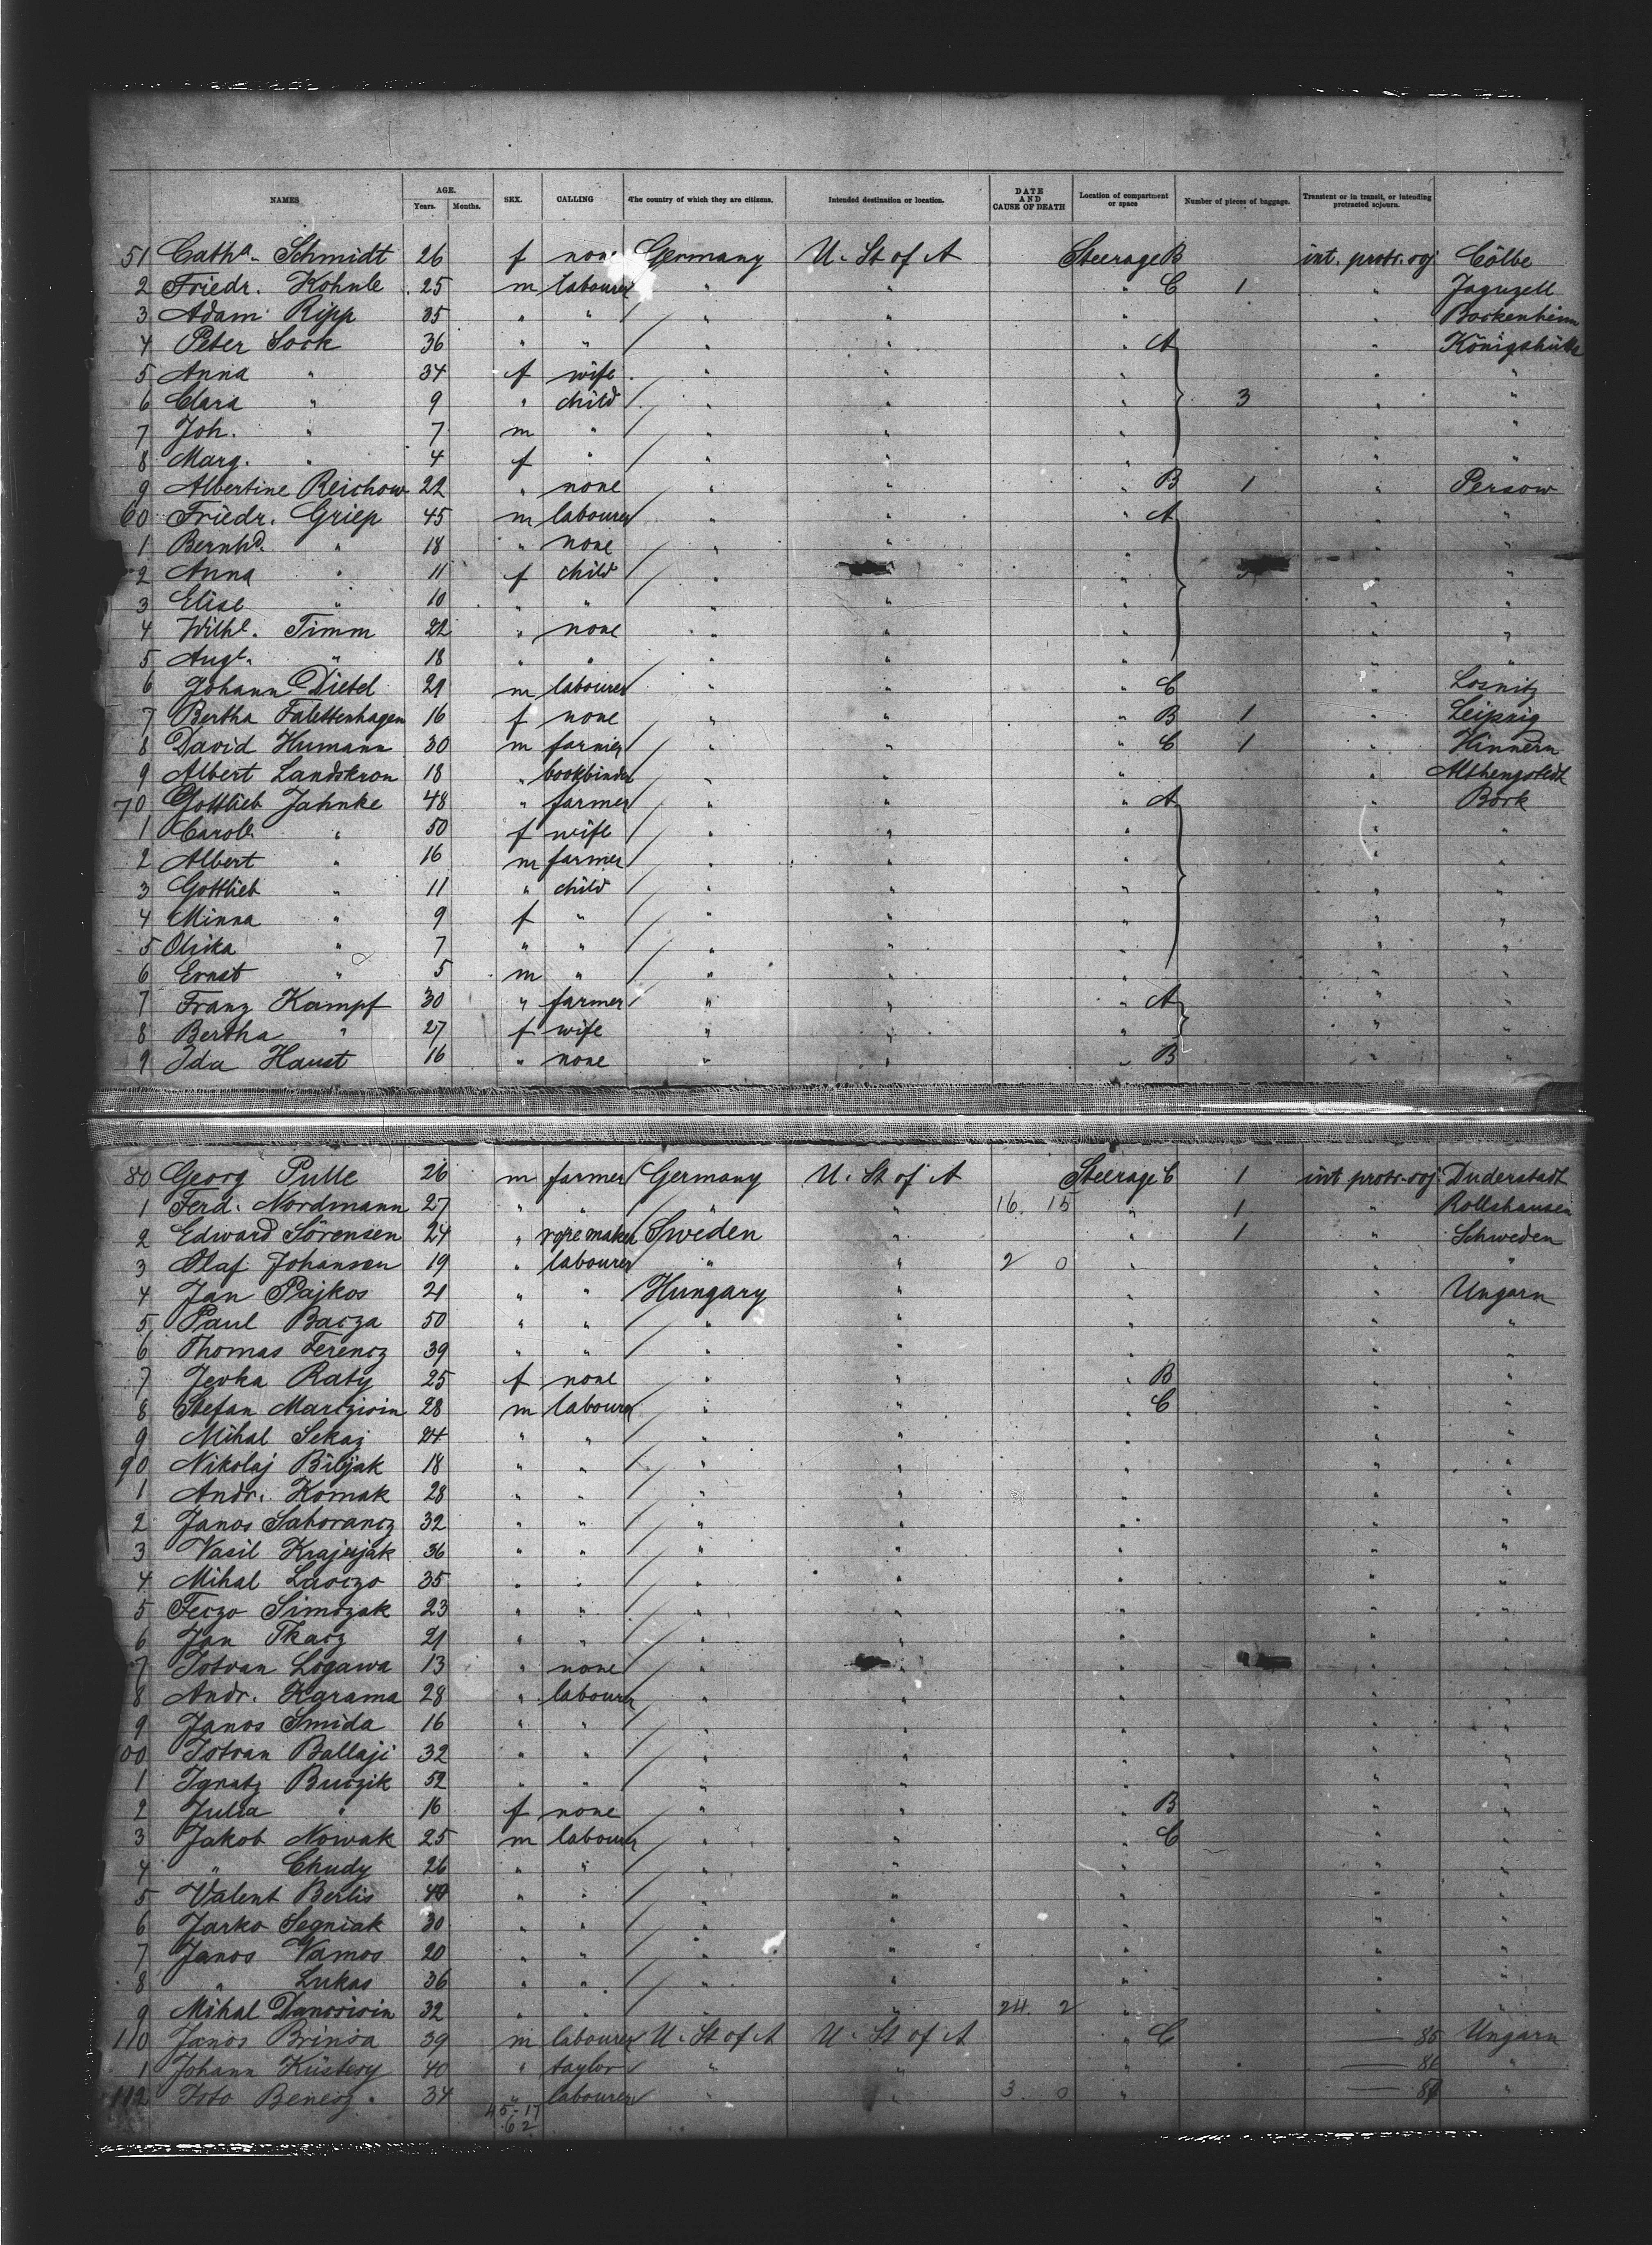 NAMES AGE. Years. Months. SEX. CALLING The country of which they are citizens. Intended destination or location. DATE AND CAUSE OF DEATH Location of compartment or space Number of pieces of baggage. Transient or in transit, or intending protracted sojourn.
51 Cath^a. Schmidt 26 f none Germany U. St of A Steerage B int. protr. soj Cölbe
2 Friedr. Kohnle 25 m labourer " " " C 1 " Jagstzell
3 Adam Ripp 35 " " " " " " Bockenheim
4 Peter Sock 36 " " " " " A " Königshütte
5 Anna " 34 f wife " " " " "
6 Clara " 9 " child " " " 3 " "
7 Joh. " 7 m " " " " " "
8 Marg. " 4 f " " " " " "
9 Albertine Reichow 22 " none " " " B 1 " Persow
60 Friedr. Griep 45 m labourer " " " A " "
1 Bernhd. " 18 " none " " " " "
2 Anna " 11 f child " " " "
3 Elise " 10 " " " " " " "
4 Wilhe. Timm 22 " none " " " " "
5 Augte. " 18 " " " " " " "
6 Johann Dietel 29 m labourer " " " C " Losnitz
7 Bertha Falettenhagen 16 f none " " " B 1 " Leipzig
8 David Humann 30 m farmer " " " C 1 " Hinnern
9 Albert Landskron 18 " bookbinder " " " " Althengstedt
70 Gottlieb Jahnke 48 " farmer " " " A " Bork
1 Carole " 50 f wife " " " " "
2 Albert " 16 m farmer " " " " "
3 Gottlieb " 11 " child " " " " "
4 Minna " 9 f " " " " " "
5 Olrika " 7 " " " " " " "
6 Ernst " 5 m " " " " " "
7 Franz Kampf 30 " farmer " " " A " "
8 Bertha " 27 f wife " " " " "
9 Ida Haust 16 " none " " " B " "
80 Georg Pulle 26 m farmer Germany U. St of A Steerage C 1 int protr. soj. Duderstadt
1 Ferd. Nordmann 27 " " " " 16. 15 " 1 " Rollshausen
2 Edward Sörensen 24 " ropemaker Sweden " " 1 " Schweden
3 Olaf Johansen 19 " labourer " " 2 0 " " "
4 Jan Pajkos 21 " " Hungary " " " Ungarn
5 Paul Bacza 50 " " " " " " "
6 Thomas Ferencz 39 " " " " " " "
7 Jevka Raty 25 f none " " " B " "
8 Stefan Marczisin 28 m labourer " " " C " "
9 Mihal Sekaz 24 " " " " " " "
90 Nikolaj Biljak 18 " " " " " " "
1 Andr. Komak 28 " " " " " " "
2 Janos Sahorancz 32 " " " " " " "
3 Vasil Krajnjak 36 " " " " " " "
4 Mihal Lasczo 35 " " " " " " "
5 Feczo Simczak 23 " " " " " " "
6 Jan Tkacz 21 " " " " " " "
7 Istvan Logawa 13 " none " " " "
8 Andr. Kgrama 28 " labourer " " " " "
9 Janos Smida 16 " " " " " " "
100 Istvan Ballaji 32 " " " " " " "
1 Ignatz Buczik 52 " " " " " " "
2 Julia " 16 f none " " " B " "
3 Jakob Nowak 25 m labourer " " " C " "
4 " Chudy 26 " " " " " " "
5 Valent Berlis 40 " " " " " " "
6 Jarko Segniak 30 " " " " " " "
7 Janos Vamos 20 " " " " " " "
8 " Lukas 36 " " " " " " "
9 Mihal Dancsisin 32 " " " " 24. 2 " " "
110 Janos Brinsa 39 m labourer U. St of A U. St of A " C — 85 Ungarn
1 Johann Küstery 40 " taylor " " " — 86 "
112 Joto Benesz 34 " labourer " " 3. 0 " — 87 "
45-17
62